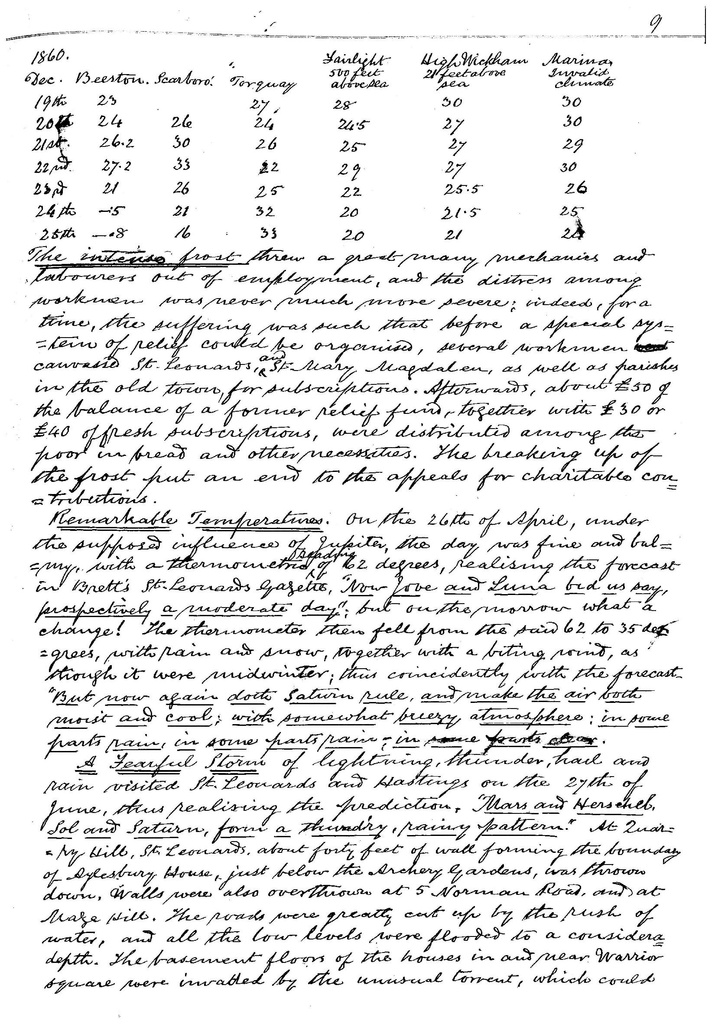 9
1860. Fairlight High Wickham Marina,
Dec. Beeston. Scarboro'. Torquay 500 feet above sea 21 feet above sea Invalid climate
19th 23 27 28 30 30
20th 24 26 24 24.5 27 30
21st. 26.2 30 26 25 27 29
22nd. 27.2 33 22 29 27 30
23rd 21 26 25 22 25.5 26
24th —.5 21 32 20 21.5 25
25th —.8 16 33 20 21
The intense frost threw a great many mechanics and
labourers out of employment, and the distress among
workmen was never much more severe; indeed, for a
time, the suffering was such that before a special sys=
=tem of relief could be organised, several workmen
canvassed St. Leonards, and St. Mary Magdalen, as well as parishes
in the old town, for subscriptions. Afterwards, about £50 of
the balance of a former relief fund, together with £30 or
£40 of fresh subscriptions, were distributed among the
poor in bread and other necessities. The breaking up of
the frost put an end to the appeals for charitable con=
=tributions.
Remarkable Temperatures. On the 26th of April, under
the supposed influence of Jupiter, the day was fine and bal=
=my, with a thermometric reading of 62 degrees, realising the forecast
in Brett's St. Leonards Gazette, "Now Jove and Luna bid us say,
prospectively a moderate day"; but on the morrow what a
change! The thermometer then fell from the said 62 to 35 de=
=grees, with rain and snow, together with a biting wind, as
though it were midwinter; thus coincidently with the forecast—
"But now again doth Saturn rule, and make the air both
moist and cool; with somewhat breezy atmosphere; in some
parts rain, in some parts rain — in some parts clear.
A Fearful Storm of lightning, thunder, hail and
rain visited St. Leonards and Hastings on the 27th of
June, thus realising the prediction, "Mars and Herschel,
Sol and Saturn, form a thund'ry, rainy pattern." At Quar=
=ry Hill, St. Leonards, about forty feet of wall forming the boundary
of Aylesbury House, just below the Archery Gardens, was thrown
down. Walls were also overthrown at 5 Norman Road, and at
Maze Hill. The roads were greatly cut up by the rush of
water, and all the low levels were flooded to a considera
depth. The basement floors of the houses in and near Warrior
square were invaded by the unusual torrent, which could